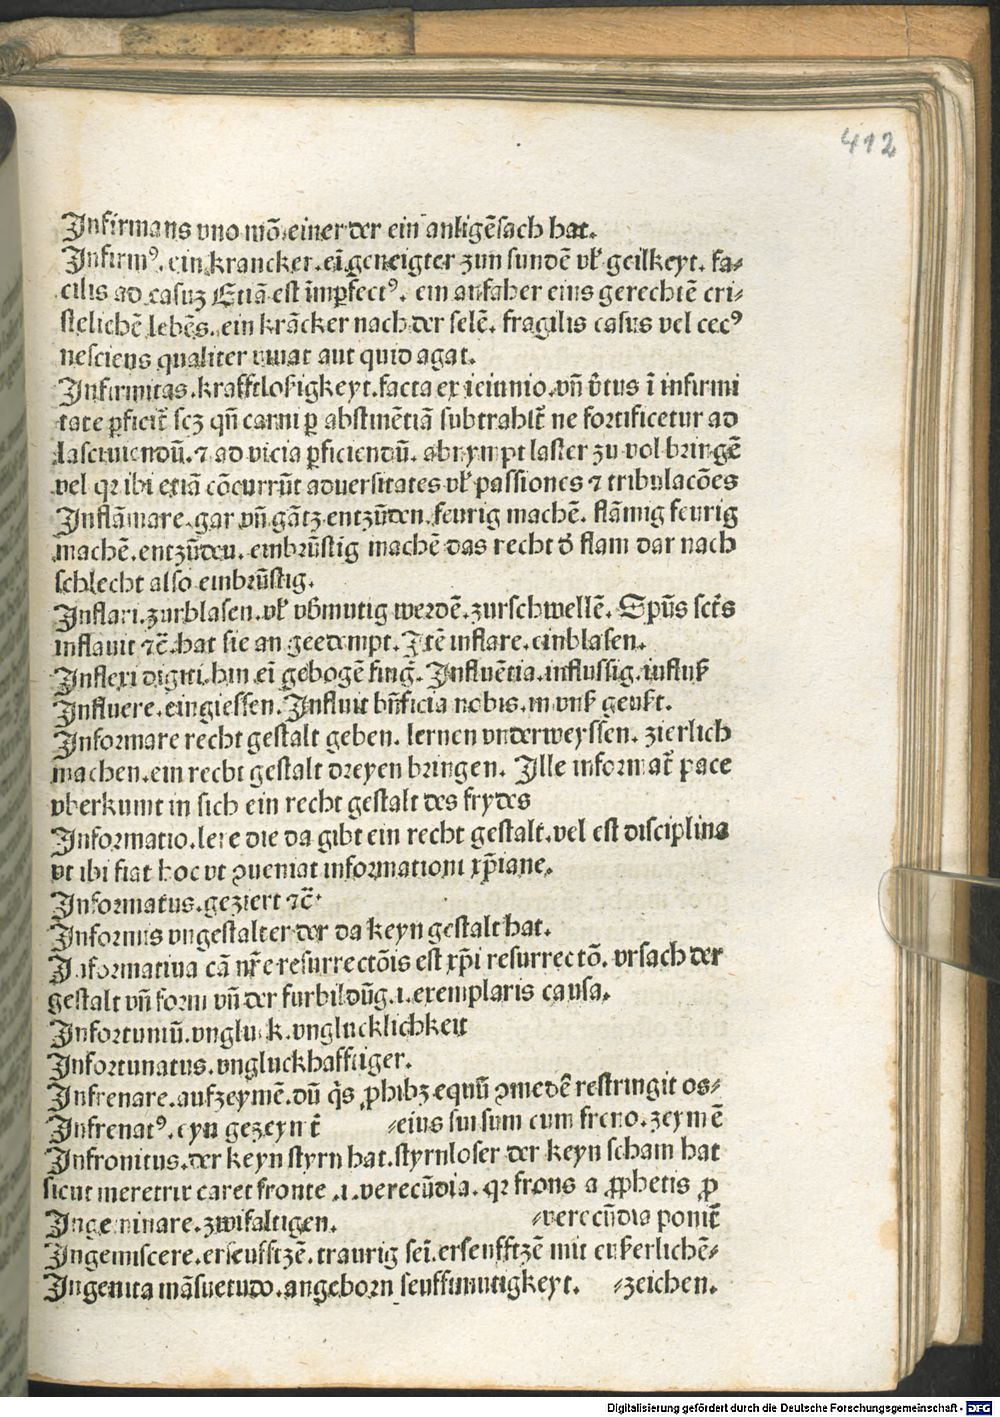 412
Infirmans vno mō. einer der ein anligēsach hat.
Infirmꝰ. ein krancker. eī geneigter zun sundē vł geilkeyt. fa⸗
cilis ad casuꝫ Etiā est īmꝑfectꝰ. ein anfaher eins gerechtē cri⸗
stelichē lebēs. ein krācker nach der selē. fragilis casus vel cecꝰ
nesciens qualiter viuat aut quid agat.
Infirmitas. krafftlosigkeyt. facta ex ieiunio. vñ v̄tus ī infirmi
tate ꝑficit̄ scꝫ qñ carni ꝑ abstinētiā subtrahit̄ ne fortificetur ad
lasciuiendū. ⁊ ad vicia ꝑficiendū. abnympt laster zu vol bringē
vel qꝛ ibi etiā cōcurrūt aduersitates vł passiones ⁊ tribulacōes
Inflāmare. gar vñ gātz entzūden. feurig machē. flāmig feurig
machē. entzūden. einbrūstig machē das recht d̄ flam dar nach
schlecht also einbrūstig.
Inflari. zurblasen. vł vb̄mutig werdē. zurschwellē. Spūs sct̄s
inflauit ⁊c̄. hat sie an geedempt. Itē inflare. einblasen.
Inflexi digiti. hin eī gebogē finḡ. Influētia. influssig. influß
Influere. eingiessen. Influit bñficia nobis. in vnß geußt.
Informare recht gestalt geben. lernen vnderweyssen. zierlich
machen. ein recht gestalt dreyen bringen. Ille informat̄ pace
vberkumt in sich ein recht gestalt des frydes
Informatio. lere die da gibt ein recht gestalt. vel est disciplina
vt ibi fiat hoc vt ꝯueniat informationi xp̄iane.
Informatus. geziert ⁊c̄
Informis vngestalter der da keyn gestalt hat.
Informatiua cā nr̄e resurrectōis est xp̄i resurrectō. vrsach der
gestalt vñ form vñ der furbildūg. i. exemplaris causa.
Infortuniū. vngluck. vnglucklichkeit
Infortunatus. vngluckhafftiger.
Infrenare. aufzeymē. dū q̄s ꝓhibꝫ equū ꝯmedē restringit os⸗
Infrenatꝰ. eyn gezeynt̄ ⸗eius sui sum cum freno. zeymē
Infronitus. der keyn styrn hat. styrnloser der keyn scham hat
sicut meretrix caret fronte. i. verecūdia. qꝛ frons a ꝓphetis ꝓ
Ingeminare. zwifaltigen. ⸗verecūdia ponit̄
Ingemiscere. erseufftzē. traurig seī. erseufftzē mit eußerlichē⸗
Ingenita māsuetudo. angeborn senfftmutigkeyt. ⸗zeichen.
Digitalisierung gefördert durch die Deutsche Forschungsgemeinschaft - DFG